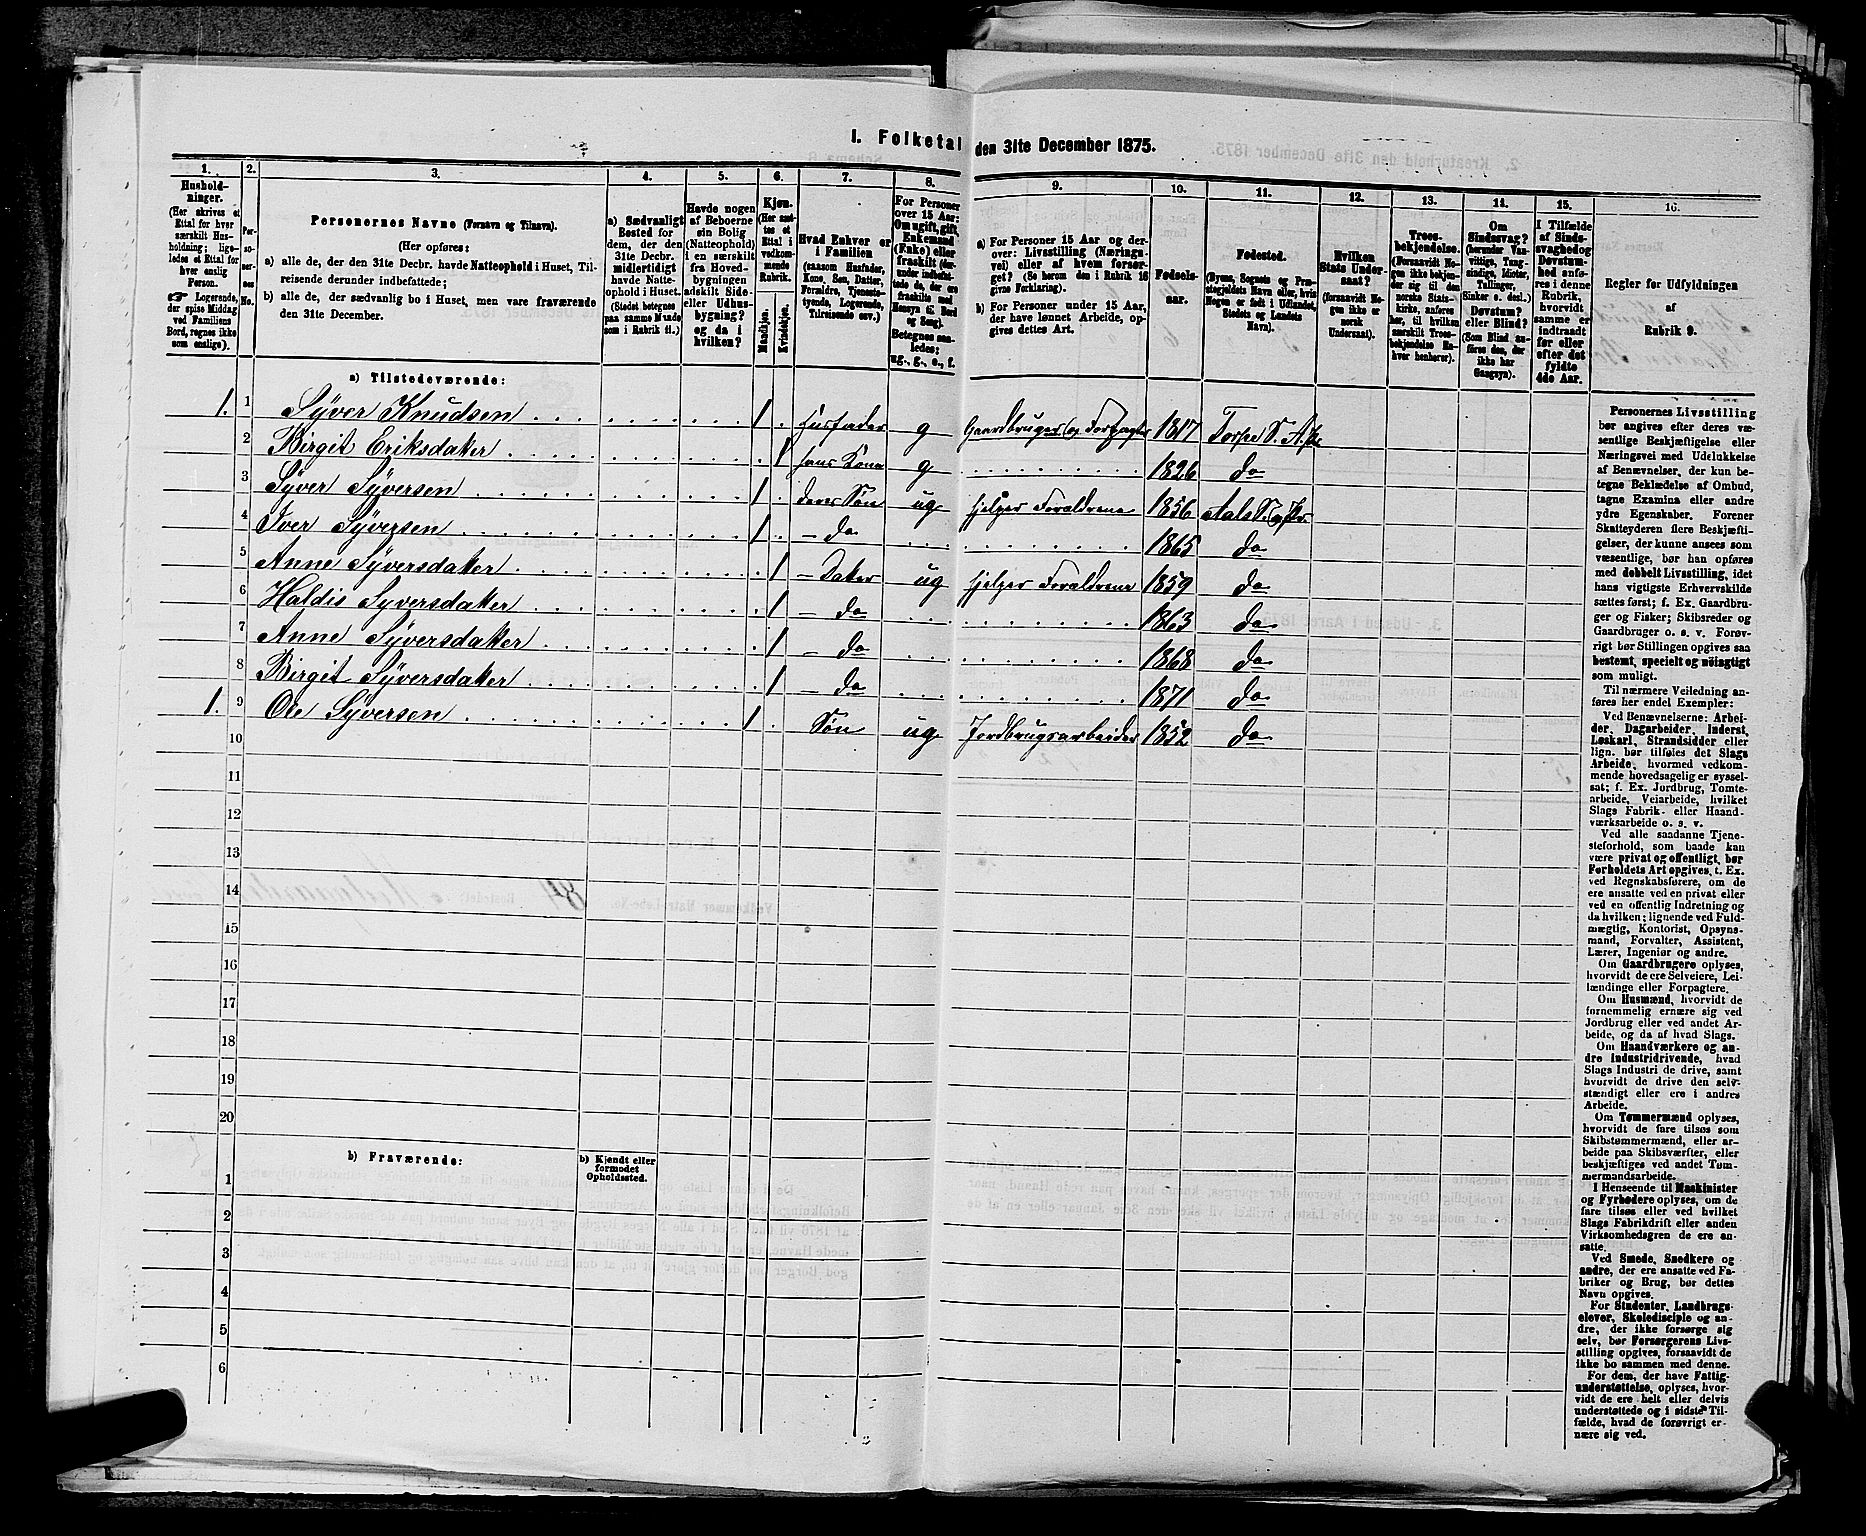 I. Folketal den 31te December 1875.
1. 2. 3. 4. 5. 6. 7. 8. 9. 10. 11. 12. 13. 14. 15. 16.
Hushold-
ninger.
(Her skrives et
Ettal for hver
særskilt Hus-
holdning; lige-
ledes et Ettal for
hver enslig
Person.
☞ Logerende,
der spise Middag
ved Familiens
Bord, regnes ikke
som enslige).
Per-
so-
ner-
nes
No.
Personernes Navne (Fornavn og Tilnavn).
(Her opføres:
a) alle de, der den 31te Decbr. havde Natteophold i Huset, Til-
reisende derunder indbefattede;
b) alle de, der sædvanlig bo i Huset, men vare fraværende
den 31te December.
a) Sædvanligt
Bosted for
dem, der den
31te Decbr.
midlertidigt
havde Natte-
ophold i Huset.
(Stedet betegnes
paa samme Maade
som i Rubrik 11.)
Havde nogen
af Beboerne
sin Bolig
(Natteophold)
i en særskilt
fra Hoved-
bygningen
adskilt Side-
eller Udhus-
bygning?
og da i
hvilken?
Kjøn.
(Her sæt-
tes et
Ettal i
vedkom-
mende
Rubrik.
Mandkjøn.
Kvindekjøn.
Hvad Enhver er
i Familien
(saasom Husfader,
Kone, Søn, Datter,
Forældre, Tjeneste-
tyende, Logerende,
Tilreisende osv.)
For Personer
over 15 Aar:
Om ugift, gift,
Enkemand
(Enke) eller
fraskilt (der-
under indbefat-
tede de, der ere
fraskilte med
Hensyn til Bord
og Seng).
Betegnes saa-
ledes:
ug., g., e., f.
a) For Personer 15 Aar og der-
over: Livsstilling (Nærings-
vei) eller af hvem forsør-
get? (Se herom den i Rubrik 16
givne Forklaring).
b) For Personer under 15 Aar,
der have lønnet Arbeide, op-
gives dettes Art.
Fødsels-
aar.
Fødested.
(Byens, Sognets og Præ-
stegjeldets Navn eller, hvis
Nogen er født i Udlandet,
Stedets og Landets
Navn).
Hvilken
Stats Under-
saat?
(forsaavidt No-
gen ikke er
norsk
Undersaat).
Troes-
bekjendelse.
(Forsaavidt No-
gen ikke bekjen-
der sig til den
norske Stats-
kirke, anføres
her, til hvilken
særskilt Troes-
bekjendelse En-
hver henhører).
Om
Sindssvag?
(herunder Van-
vittige, Tung-
sindige, Idioter,
Tullinger,
Sinker o. desl.)
Døvstum?
eller Blind?
(Som Blind an-
føres den, der
ikke har
Gangsyn).
I Tilfælde
af Sinds-
svaghed og
Døvstum-
hed anfø-
res i denne
Rubrik,
hvorvidt
samme er
indtraadt
før eller
efter det
fyldte
4de Aar.
Regler for Udfyldningen
af
Rubrik 9.
a) Tilstedeværende:
1. 1 Syver Knudsen 1 Husfader g Gaardbruger og Forpagter 1817 Torpe S. A. Pr.
2 Birgit Eriksdaker 1 hans Kone g 1826 do
3 Syver Syversen 1 deres Søn ug hjelper Foraldrene 1856 Aals S. og Pr.
4 Iver Syversen 1 — do 1865 do
5 Anne Syversdaker 1 — Daker ug hjelper Foraldrene 1859 do
6 Haldis Syversdaker 1 — do 1863 do
7 Anne Syversdaker 1 — do 1868 do
8 Birgit Syversdaker 1 — do 1871 do
1. 9 Ole Syversen 1 Søn ug Jordbrugsarbeider 1852 do
10
11
12
13
14
15
16
17
18
19
20
b) Fraværende:
b) Kjendt eller
formodet
Opholdssted.
1
2
3
4
5
6
Personernes Livsstilling
bør angives efter deres væ-
sentlige Beskjæftigelse eller
Næringsvei med Udelukkelse
af Benævnelser, der kun be-
tegne Beklædelse af Ombud,
tagne Examina eller andre
ydre Egenskaber. Forener
Skatteyderen flere Beskjæfti-
gelser, der kunne ansees som
væsentlige, bør han opføres
med dobbelt Livsstilling, idet
hans vigtigste Erhvervskilde
sættes først; f. Ex. Gaardbru-
ger og Fisker; Skibsreder og
Gaardbruger o. s. v. Forøv-
rigt bør Stillingen opgives saa
bestemt, specielt og nøiagtigt
som muligt.
Til nærmere Veiledning an-
føres her endel Exempler:
Ved Benævnelserne: Arbei-
der, Dagarbeider, Inderst,
Løskarl, Strandsidder eller
lign. bør tilføies det Slags
Arbeide, hvormed vedkom-
mende hovedsagelig er syssel-
sat; f. Ex. Jordbrug, Tomte-
arbeide, Veiarbeide, hvilket
Slags Fabrik- eller Haand-
værksarbeide o. s. v.
Ved alle saadanne Tjene-
steforhold, som baade kan
være privat og offentligt, bør
Forholdets Art opgives, t. Ex.
ved Regnskabsførere, om de
ere ansatte ved en privat eller
ved en offentlig Indretning og
da hvilken; lignende ved Fuld-
mægtig, Kontorist, Opsyns-
mand, Forvalter, Assistent,
Lærer, Ingeniør og andre.
Om Gaardbrugere oplyses,
hvorvidt de ere Selveiere, Lei-
lændinge eller Forpagtere.
Om Husmænd, hvorvidt de
fornemmelig ernære sig ved
Jordbrug eller ved andet Ar-
beide, og da af hvad Slags.
Om Haandværkere og an-
dre Industridrivende, hvad
Slags Industri de drive, samt
hvorvidt de drive den selv-
stændigt eller ere i andres
Arbeide.
Om Tømmermænd oplyses,
hvorvidt de fare tilsøs som
Skibstømmermænd, eller ar-
beide paa Skibsværfter, eller
beskjæftiges ved andet Tøm-
mermandsarbeide.
I Henseende til Maskinister
og Fyrbødere oplyses, om de
fare tilsøs eller ved hvilket
Slags Fabrikdrift eller anden
Virksomhedsgren de ere an-
satte.
Ved Smede, Snedkere og
andre, der ere ansatte ved Fa-
briker og Brug, bør dettes
Navn opgives.
For Studenter, Landbrugs-
elever, Skoledisciple og an-
dre, der ikke forsørge sig
selv, bør Forsørgerens Livs-
stilling opgives, forsaavidt de
ikke bo sammen med denne.
For dem, der have Fattig-
understøttelse, oplyses, hvor-
vidt de ere helt eller delvis
understøttede og i sidste Til-
fælde, hvad de forøvrigt er-
nære sig ved.